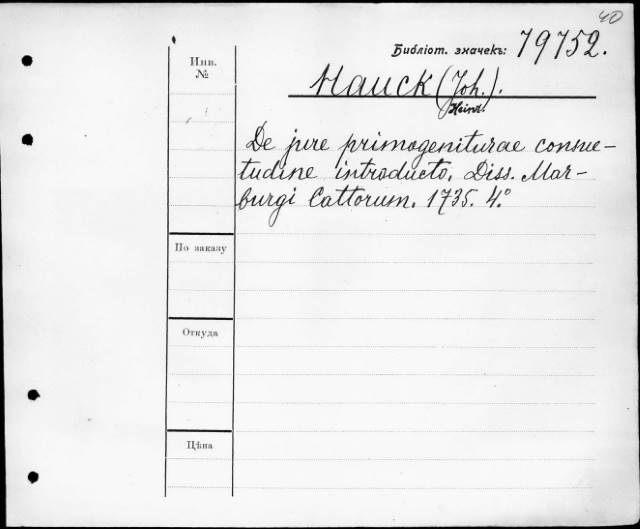 40
Библіот. значекъ: 79752.
Инв. №
Hauck (Joh.).
Heinr.
De jure primogeniturae consue-
tudine introducto. Diss. Mar-
burgi Cattorum. 1735. 4.º
По заказу
Откуда
Цѣна